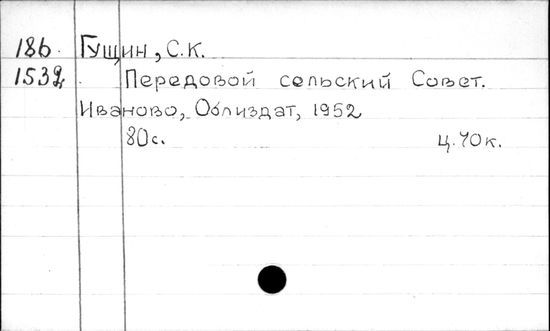 186. Гущин, С.К.
1532 Передовой сельский Совет.
Иваново, Облиздат, 1952
80с. ц. 70к.